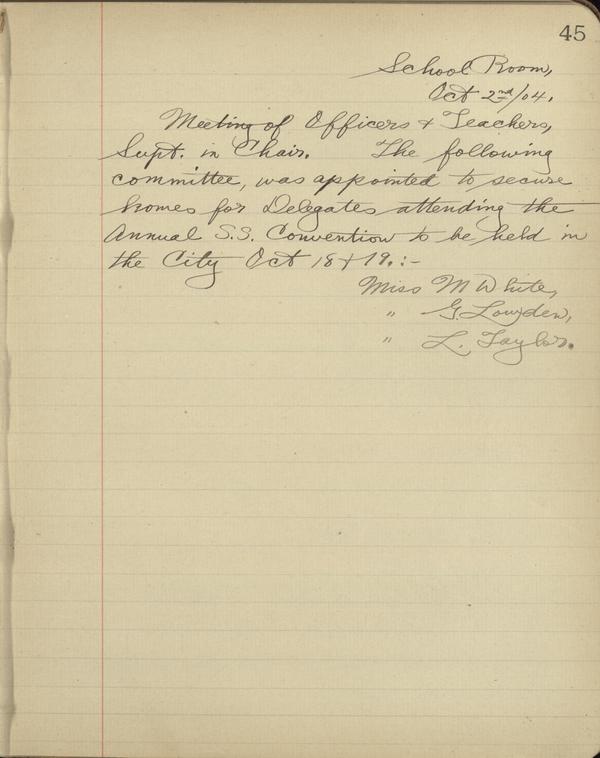 45
School Room,
Oct 2nd/04.
Meeting of Officers & Teachers,
Supt. in Chair. The following
committee, was appointed to secure
homes for Delegates attending the
Annual S.S. Convention to be held in
the City Oct 18 & 19.:-
Miss M White,
" G. Lowden,
" L. Taylor.